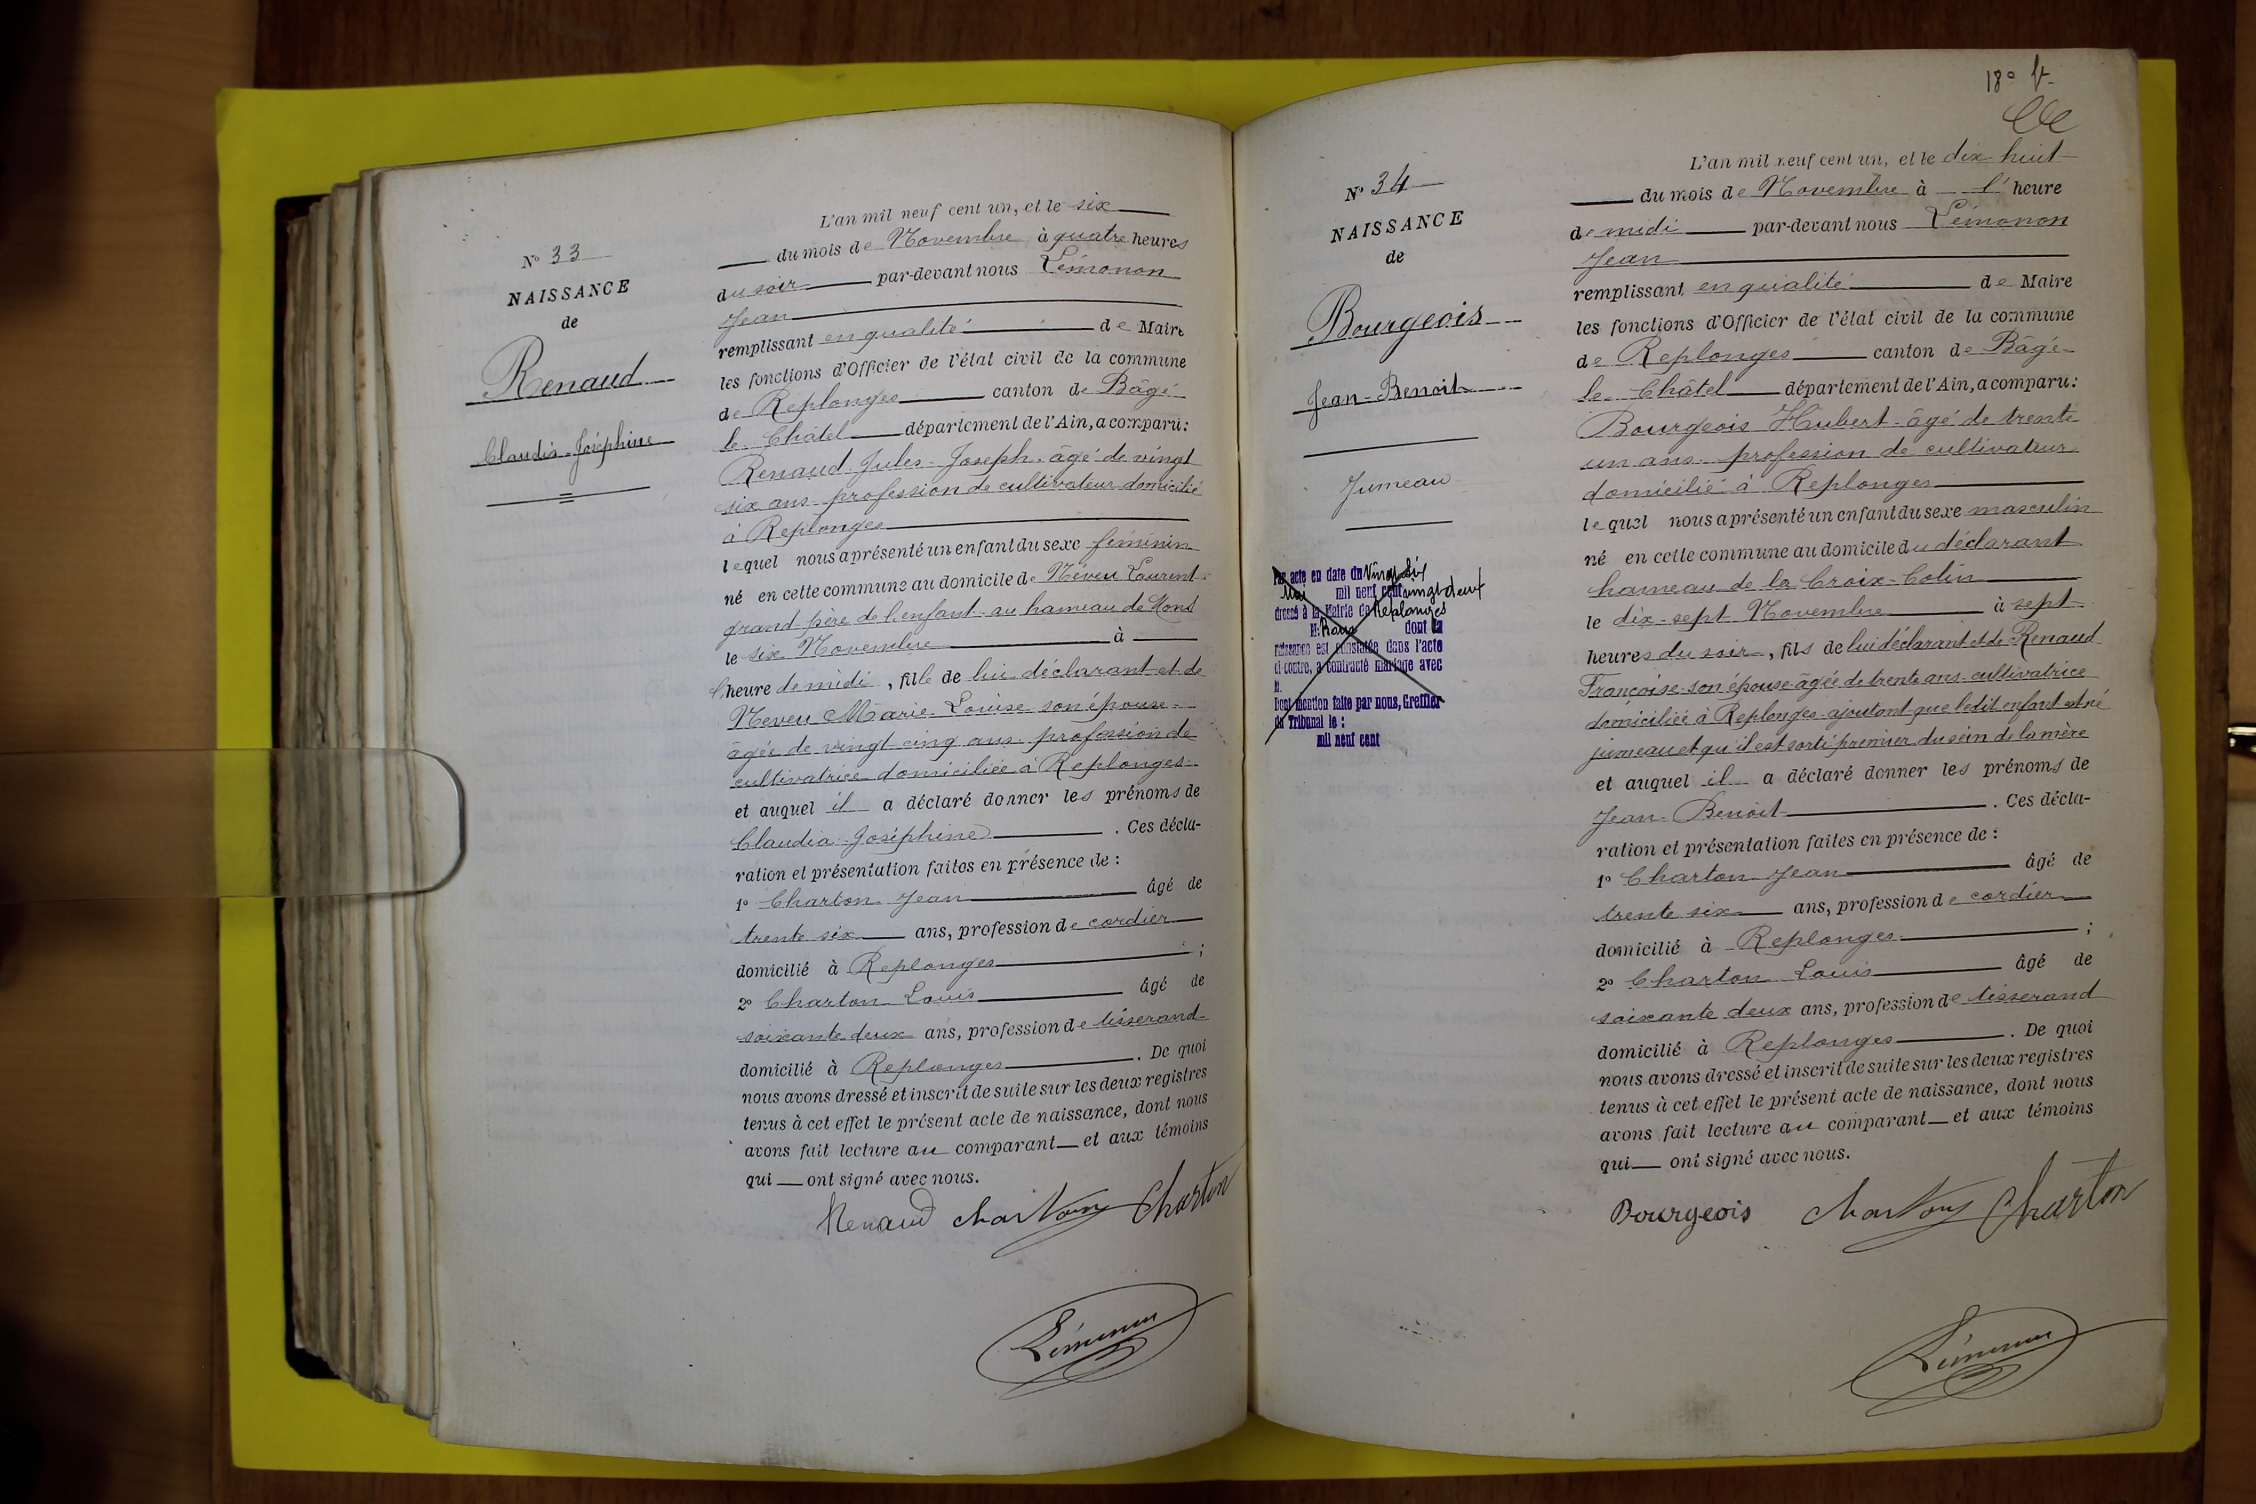 N° 33
NAISSANCE
de
Renaud
Claudia-Joséphine
L'an mil neuf cent un, et le six
du mois de Novembre à quatre heures
du soir par-devant nous Lémonon
Jean
remplissant en qualité de Maire
les fonctions d'Officier de l'état civil de la commune
de Replonges canton de Bâgé
le Châtel département de l'Ain, a comparu:
Renaud Jules-Joseph. âgé de vingt
six ans profession de cultivateur domicilié
à Replonges
lequel nous a présenté un enfant du sexe féminin
né en cette commune au domicile de Néveu Laurent
grand père de l'enfant au hameau de Mons
le six Novembre à
l'heure de midi, fille de lui déclarant et de
Neveu Marie-Louise son épouse
âgée de vingt cinq ans profession de
cultivatrice domiciliée à Replonges
et auquel il a déclaré donner les prénoms de
Claudia Joséphine. Ces décla-
ration et présentation faites en présence de :
1° Charton Jean âgé de
trente six ans, profession de cordier
domicilié à Replonges ;
2° Charton Louis âgé de
soixante deux ans, profession de tisserand
domicilié à Replonges. De quoi
nous avons dressé et inscrit de suite sur les deux registres
tenus à cet effet le présent acte de naissance, dont nous
avons fait lecture au comparant et aux témoins
qui ont signé avec nous.
Renaud Charton Charton
Lémonon
18°
N° 34
NAISSANCE
de
Bourgeois
Jean-Benoit
Jumeau
Par acte en date du Vingt Six
Mai mil neuf cent vingt deux
dressé à la Mairie de Replonges
M. dont la
naissance est constatée dans l'acte
ci contre, a contracté mariage avec
M.
Dont mention faite par nous, Greffier
du Tribunal le :
mil neuf cent
L'an mil neuf cent un, et le dix huit
du mois de Novembre à l'heure
de midi par-devant nous Lémonon
Jean
remplissant en qualité de Maire
les fonctions d'Officier de l'état civil de la commune
de Replonges canton de Bâgé
le Châtel département de l'Ain, a comparu:
Bourgeois Hubert âgé de trente
un ans profession de cultivateur
domicilié à Replonges
lequel nous a présenté un enfant du sexe masculin
né en cette commune au domicile du déclarant
hameau de la Croix-Colin
le dix-sept Novembre à sept
heures du soir, fils de lui déclarant et de Renaud
Françoise son épouse âgée de trente ans cultivatrice
domiciliée à Replonges ajoutant que ledit enfant est né
jumeau et qu'il est sorti premier du sein de la mère
et auquel il a déclaré donner les prénoms de
Jean-Benoit. Ces décla-
ration et présentation faites en présence de :
1° Charton Jean âgé de
trente six ans, profession de cordier
domicilié à Replonges ;
2° Charton Louis âgé de
soixante deux ans, profession de tisserand
domicilié à Replonges. De quoi
nous avons dressé et inscrit de suite sur les deux registres
tenus à cet effet le présent acte de naissance, dont nous
avons fait lecture au comparant et aux témoins
qui ont signé avec nous.
Bourgeois Charton Charton
Lémonon